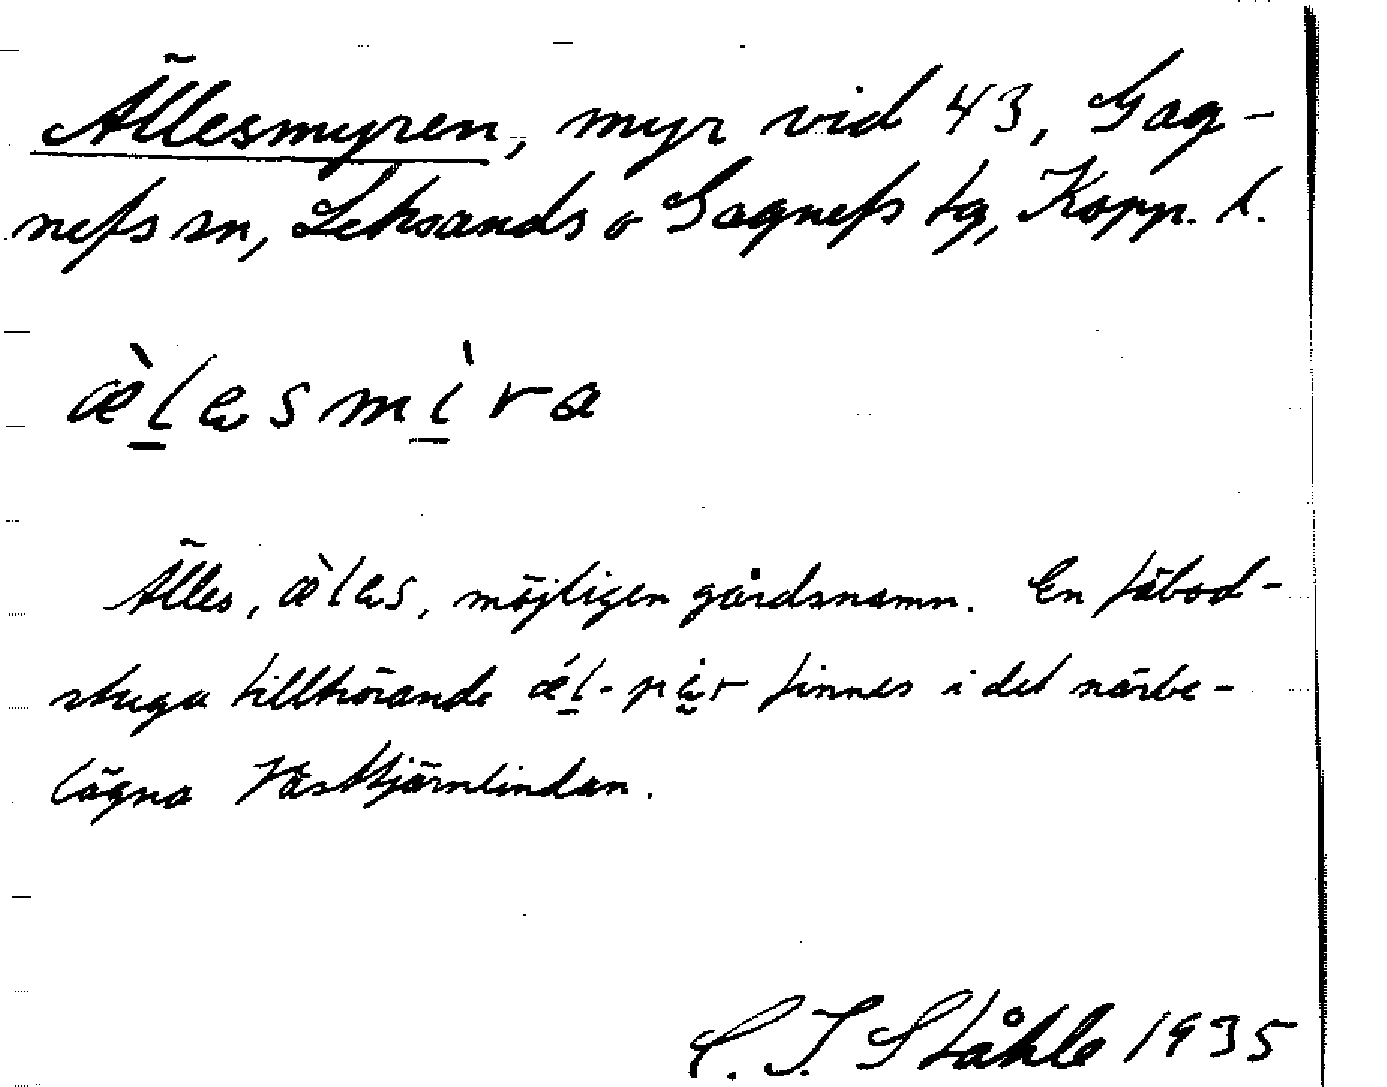 Ällesmyren, myr vid 43, Gag-
nefs sn, Leksands o Gagnefs tg, Kopp. l.
æ̀l̠əsmì̠ra
Älles, æ̀ləs, möjligen gårdsnamn. En fäbod-
stuga tillhörande ǽl̠-pèr finnes i det närbe-
lägna Västtjärnlindan.
C. I. Ståhle 1935